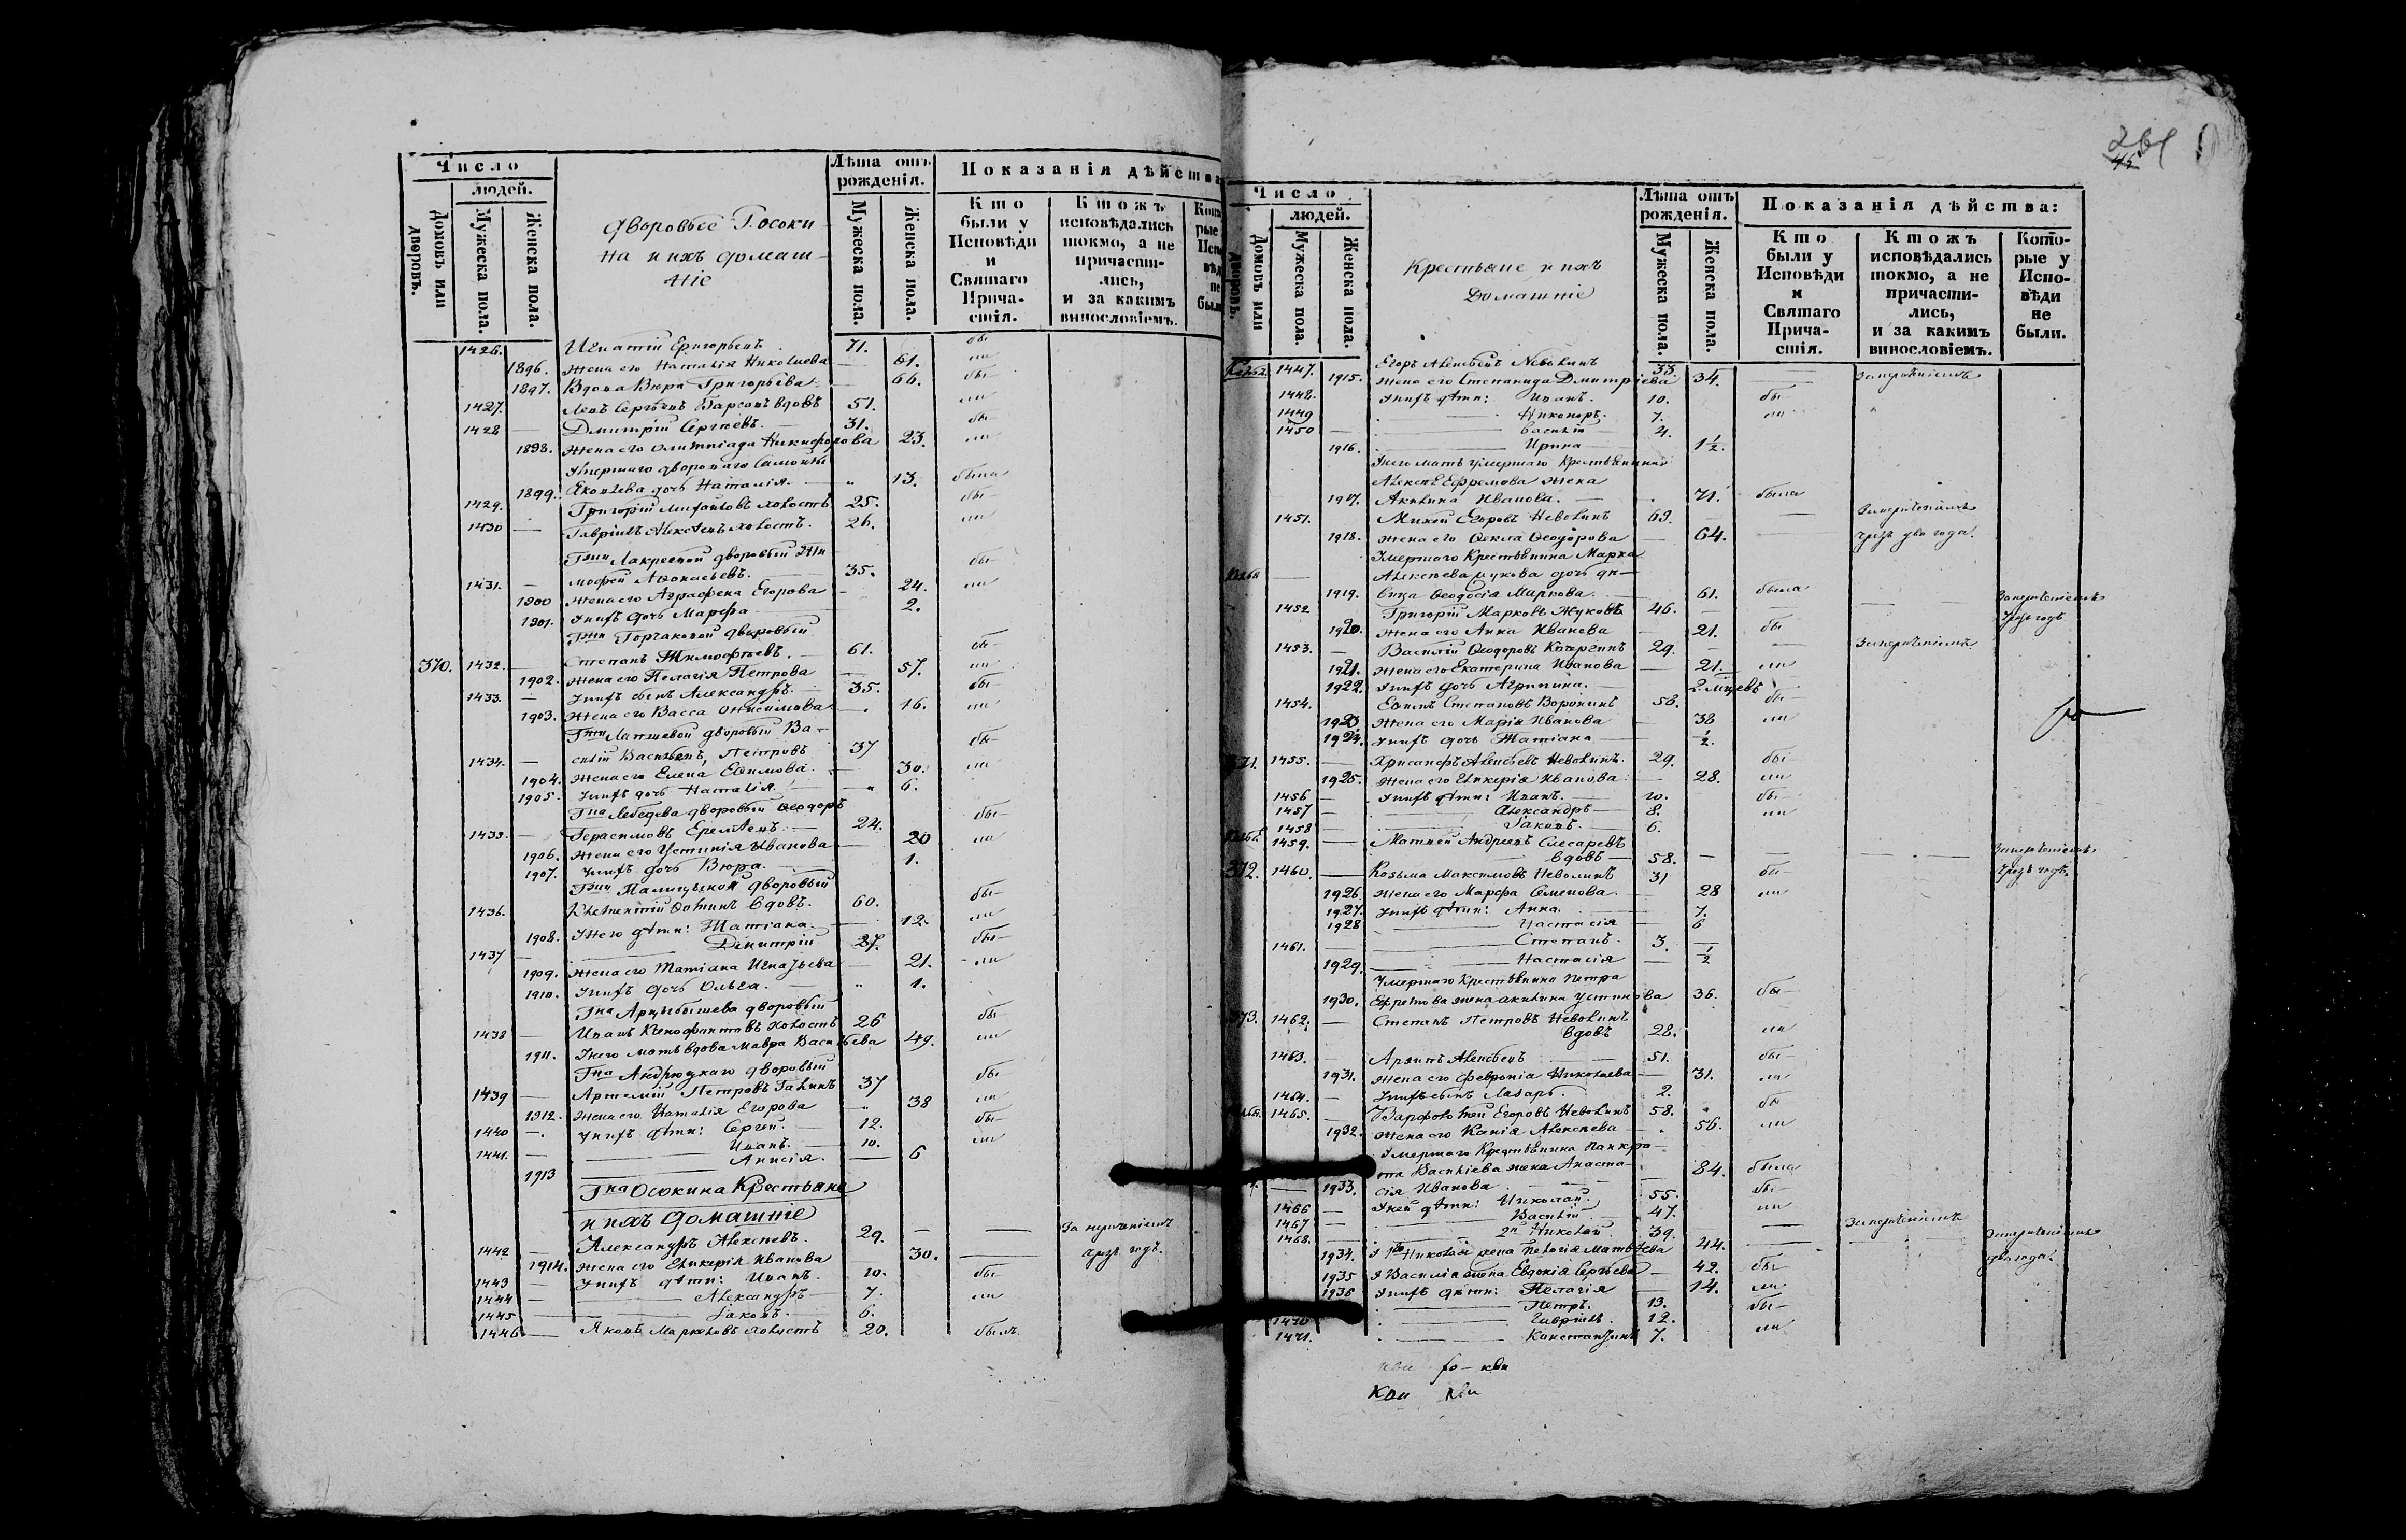 Число
людей.
Домовъ или дворовъ.
Мужеска пола.
Женска пола.
Дворовые Г. Осоки-
на и ихъ домаш-
ніе
Лѣта отъ рожденія.
Мужеска пола.
Женска пола.
Показанія дѣйства
Кто были у Исповѣди и Святаго Причастія.
Ктожъ исповѣдались токмо, а не причастились, и за какимъ винословіемъ.
1426. Игнатій Григорьевъ 71. бы
1896. Жена его Наталія Николаева 61. ли
1897. Вдова Вѣра Григорьева 66. бы
1427. Левъ Сергѣевъ вдовъ 51. ли
1428 Дмитрій Сергѣевъ. 31. бы
1898. Жена его Олимпіада Никифорова 23. ли
Умершаго двороваго
1899. Яковлева дочь Наталія. 13. была
1429. Григорій Михайловъ холостъ 25. бы
1430 Гавріилъ Алексѣевъ холостъ. 26. ли
Гжи дворовый Ти-
1431. мофей Афонасьевъ. 35. бы
1900 Жена его Аграфена Егорова 24. ли
1901. У нихъ дочь Марфа 2.
Гжи Горчаковой дворовый
370. 1432. Степанъ Тимофѣевъ. 61. бы
1902. Жена его Пелагія Петрова 57. ли
1433. У нихъ сынъ Александръ. 35. бы
1903. Жена его Васса Онисимова 16. ли
Гжи Лаптевой дворовый Ва-
1434. силій Васильевъ, Петровъ 37 бы
1904. Жена его Елена Ефимова. 30. ли
1905. У нихъ дочь Наталія. 6.
Гна Лебедева дворовый Ѳеодоръ
1435. Герасимовъ Еремѣевъ. 24. бы
1906. Жена его Устинія Иванова 20 ли
1907. У нихъ дочь Вѣра. 1.
дворовый
1436. вдовъ. 60. бы
1908. У него дѣти: Татіана. 12. ли
1437 Димитрій 27. бы
1909. Жена его Татіана Игнатьева 21. ли
1910. У нихъ дочь Ольга. 1.
Гна Арцыбышева дворовый
1438 Иванъ Ксенофонтовъ холостъ 26 бы
1911. У него мать вдова Мавра Васильева 49. ли
Гна дворовый
1439 Артемій Петровъ Галинъ 37 бы
1912. Жена его Наталія Егорова 38 ли
1440 У нихъ дѣти: Сергей. 12. бы
1441. Иванъ. 10. ли
1913 Анисія. 6
Гна Осокина Крестьяне
и ихъ домашніе
1442 Александръ Алексѣевъ. 29. За нерченіемъ
1914. Жена его Гликерія Иванова 30. чрезъ годъ.
1443 У нихъ дѣти: Иванъ. 10. бы
1444 Александръ 7. ли
1445 Іаковъ. 6.
1446 Яковъ Марковъ холостъ 20. былъ
45
Число
людей.
Домовъ или дворовъ.
Мужеска пола.
Женска пола.
Крестьяне и ихъ
Домашніе
Лѣта отъ рожденія.
Мужеска пола.
Женска пола.
Показанія дѣйства:
Кто были у Исповѣди и Святаго Причастія.
Ктожъ исповѣдались токмо, а не причастились, и за какимъ винословіемъ.
Которые у Исповѣди не были.
1447. Егоръ Алексѣевъ Неволинъ 33.
1915. Жена его Степанида Дмитріева 34.
1448. У нихъ дѣти: Иванъ. 10. бы
1449 Никоноръ. 7. ли
1450 Василій 4.
1916. Ирина 1½.
У него мать умершаго Крестьянина
Алексѣя Ефремова жена
1917. Акилина Иванова. 71. была
1451. Михей Егоровъ Неволинъ 69.
1918. Жена его Ѳекла Ѳеодорова 64. чрезъ два года.
Умершаго Крестьянина Марка
Алексѣева Жукова дочь дѣ-
1919. вица Ѳеодосія Маркова. 61. была
1452. Григорій Марковъ Жуковъ 46.
1920. Жена его Анна Иванова 21. бы чрезъ годъ
1453. Василій Ѳеодоровъ Кочергинъ 29.
1921. Жена его Екатерина Иванова 21. ли
1922. У нихъ дочь Агрипина. 2. мцевъ
1454. Ефимъ Степановъ Воронинъ 58. бы
1923 Жена его Марія Иванова 38 ли
1924. У нихъ дочь Татіана ½.
371. 1455. Хрисанфъ Алексѣевъ Неволинъ. 29. бы
1925. Жена его Гликерія Иванова 28. ли
1456 У нихъ дѣти: Иванъ. 10. бы
1457 Александръ 8. ли
1458 Іаковъ. 6.
1459. Матвей Андреевъ Слесаревъ
вдовъ 58.
372. 1460. Козьма Максимовъ Неволинъ 31 бы чрезъ годъ.
1926. Жена его Марфа Семенова. 28 ли
1927. У нихъ дѣти: Анна. 7.
1928 Настасія 6
1461. Степанъ. 3.
1929. Настасія ½
Умершаго Крестьянина Петра
1930. Ефремова жена Акилина Устинова 36. бы
373. 1462. Степанъ Петровъ Неволинъ
вдовъ 28. ли
1463. Архипъ Алексѣевъ 51. бы
1931. Жена его Февронія Николаева 31. ли
1464. У нихъ сынъ Лазарь. 2.
1465. Варфоломей Егоровъ Неволинъ 58. бы
1932. Жена его Ксенія Алексѣева 56. ли
Умершаго Крестьянина Панкра-
та Васильева жена Анаста- 84. была
1933. сія Иванова
1466 У ней дѣти: Николай. 55. бы
1467 Василій 47. ли
1468. 2й Николай. 39.
1934. У 1го Николая жена Пелагія Матвѣева 44.
1935 У Василія жена Евдокія Сергѣева 42. бы два года.
1936 У нихъ дѣти: Пелагія 14. ли
Петръ. 13. бы
1470 Гавріилъ. 12.
1471. Константинъ 7. ли